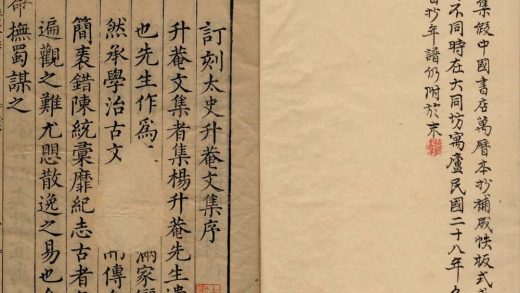 集假中國書店萬曆本抄補成帙版式
不同時在大同坊寓廬民國二十八年
抄年譜仍附於末
訂刻太史升菴文集序
升菴文集者集楊升菴先生遺
也先生作爲 家
然承學治古文 而傳
簡袠錯陳統彙靡紀志古者
遍觀之難尤愳散逸之易也
命撫蜀謀之